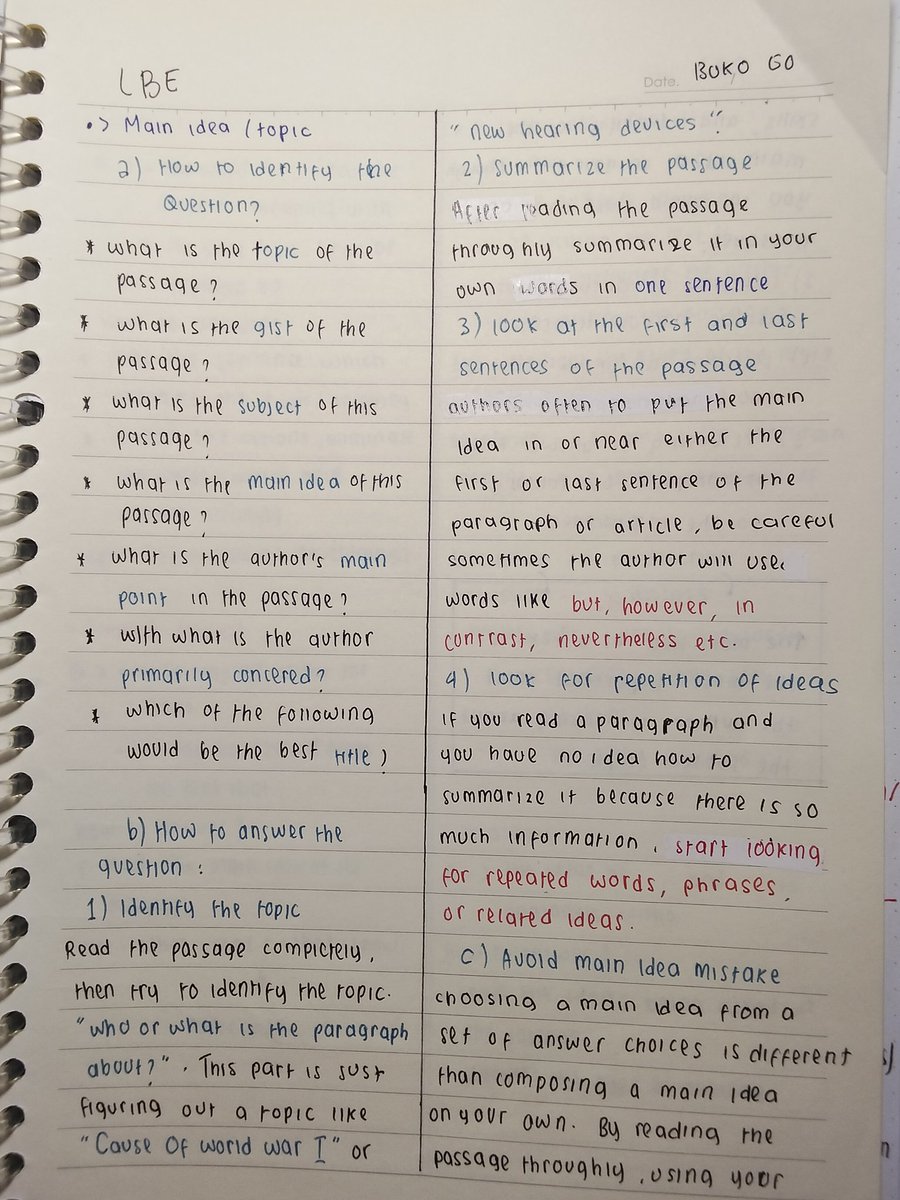 LBE
Date. BUKO GO
•> Main idea / topic
a) How to identify the
Question?
* what is the topic of the
passage?
* what is the gist of the
passage?
* what is the subject of this
passage?
* what is the main idea of this
passage?
* what is the author's main
point in the passage?
* with what is the author
primarily concered?
* which of the following
would be the best title)
b) How to answer the
question :
1) Identify the topic
Read the passage completely,
then try to identify the topic.
"who or what is the paragraph
about?". This part is just
figuring out a topic like
"Cause Of world war I" or
"new hearing devices".
2) summarize the passage
After reading the passage
throughly summarize it in your
own words in one sentence
3) look at the first and last
sentences of the passage
authors often to put the main
idea in or near either the
first or last sentence of the
paragraph or article, be careful
sometimes the author will use
words like but, however, in
contrast, nevertheless etc.
4) look for repetition of ideas
if you read a paragraph and
you have no idea how to
summarize it because there is so
much information, start looking
for repeated words, phrases,
or related ideas.
c) Avoid main idea mistake
choosing a main idea from a
set of answer choices is different
than composing a main idea
on your own. By reading the
passage throughly, using your